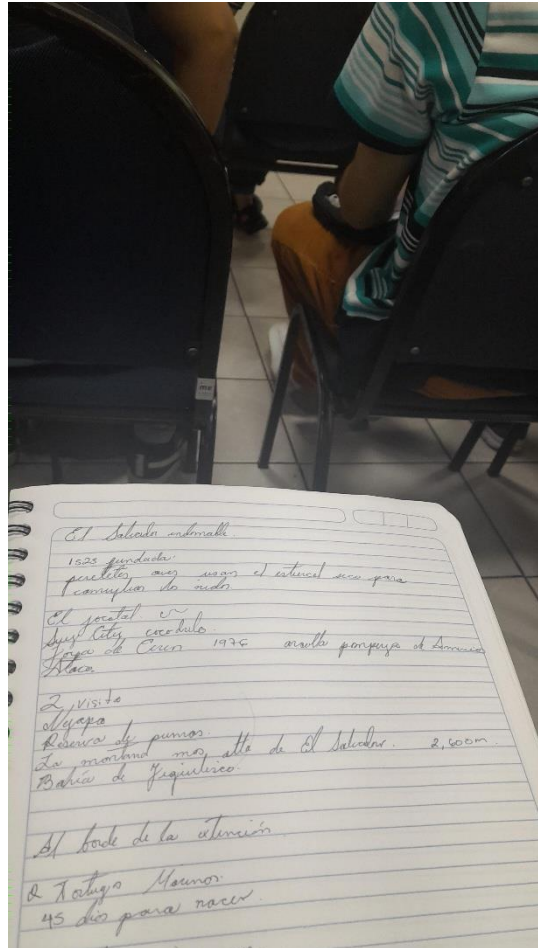 El Salvador indomable
1525 fundada.
aves usan el estiercol seco para
los nidos
El jocotal
Surf City cocodrilo
Joya de Ceren 1976 pompeya de America
Ataca
2, visita
Nejapa
Reserva de pumas.
La montana mas alta de El Salvador. 2,600m.
Bahía de Jiquilisco.
Al borde de la
Tortuga Marinas
45 dias para nacer.